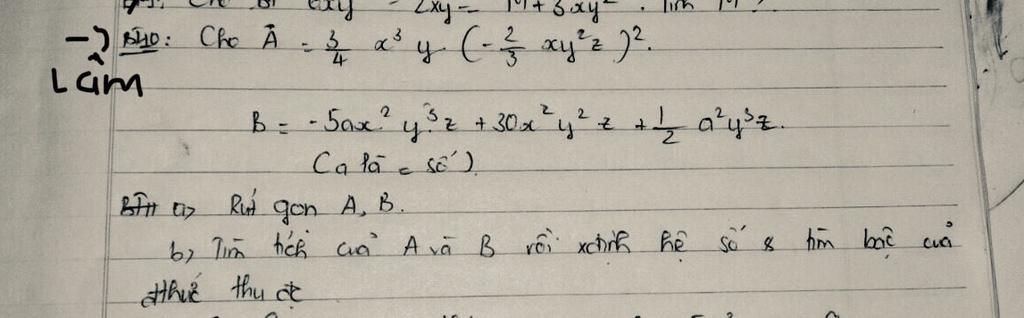 2xy = M + 3xy². Tìm M
→ Bài 10: Cho A = 3/4 x³ y (-2/3 xy²z)².
Làm
B = -5ax² y³z + 30x²y² z + 1/2 a²y³z.
(a là = số)
a, Rút gọn A, B.
b, Tìm tích của A và B rồi xđịnh hệ số & tìm bậc của
thức thu đc